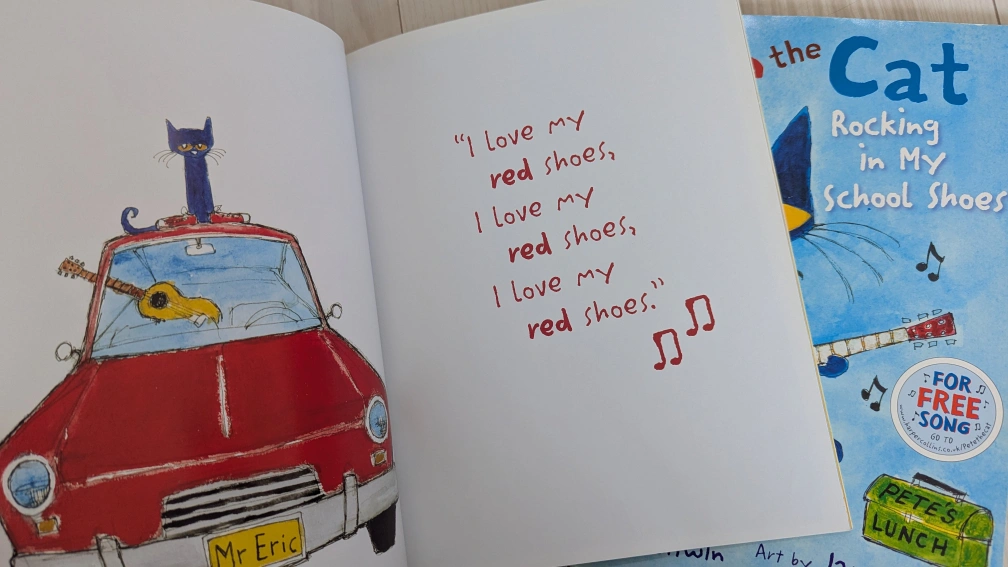 Mr Eric
"I love my
red shoes,
I love my
red shoes,
I love my
red shoes."
the Cat
Rocking
in My
School Shoes
FOR
FREE
SONG
GO TO
www.harpercollins.co.uk/PetetheCat
PETE'S
LUNCH
Art by